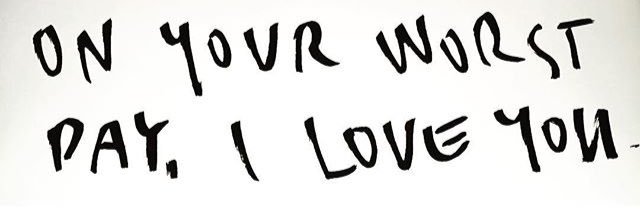 ON YOUR WORST
DAY, I LOVE YOU.